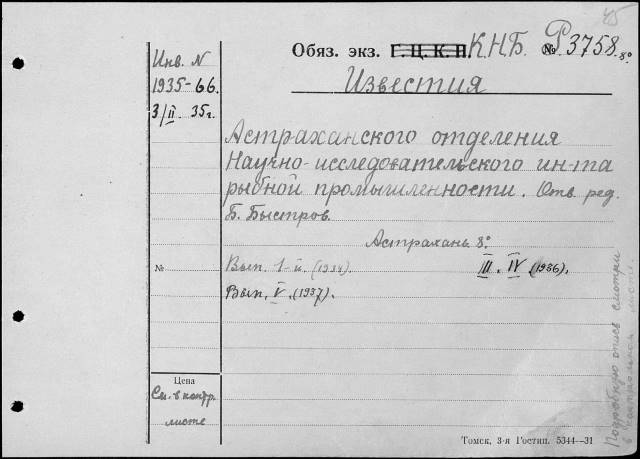 45
Обяз. экз. Г.Ц.К.П. К.Н.Б. № Р3758. 8º
Известия
Инв. N
1935-66.
3/II 35г.
Астраханского отделения
Научно-исследовательского ин-та
рыбной промышленности. Отв. ред.
Б. Быстров.
Астрахань 8º.
№ Вып. 1-й. (1934). III. IV (1936).
Вып. V. (1937).
Цена
См. в контр.
листе
Томск, 3-я Гостип. 5344—31
Подробную опись смотри
в контрольном листе.